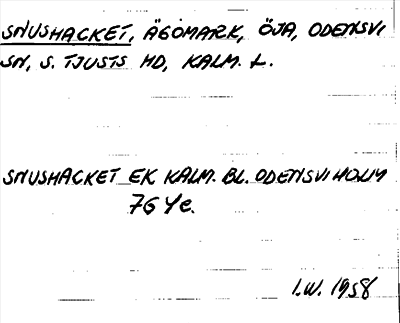 SNUSHACKET, ÄGOMARK, ÖJA, ODENSVI
SN, S. TJUSTS HD, KALM. L.
SNUSHACKET EK KALM. BL. ODENSVIHOLM
7G4e.
I.W. 1958